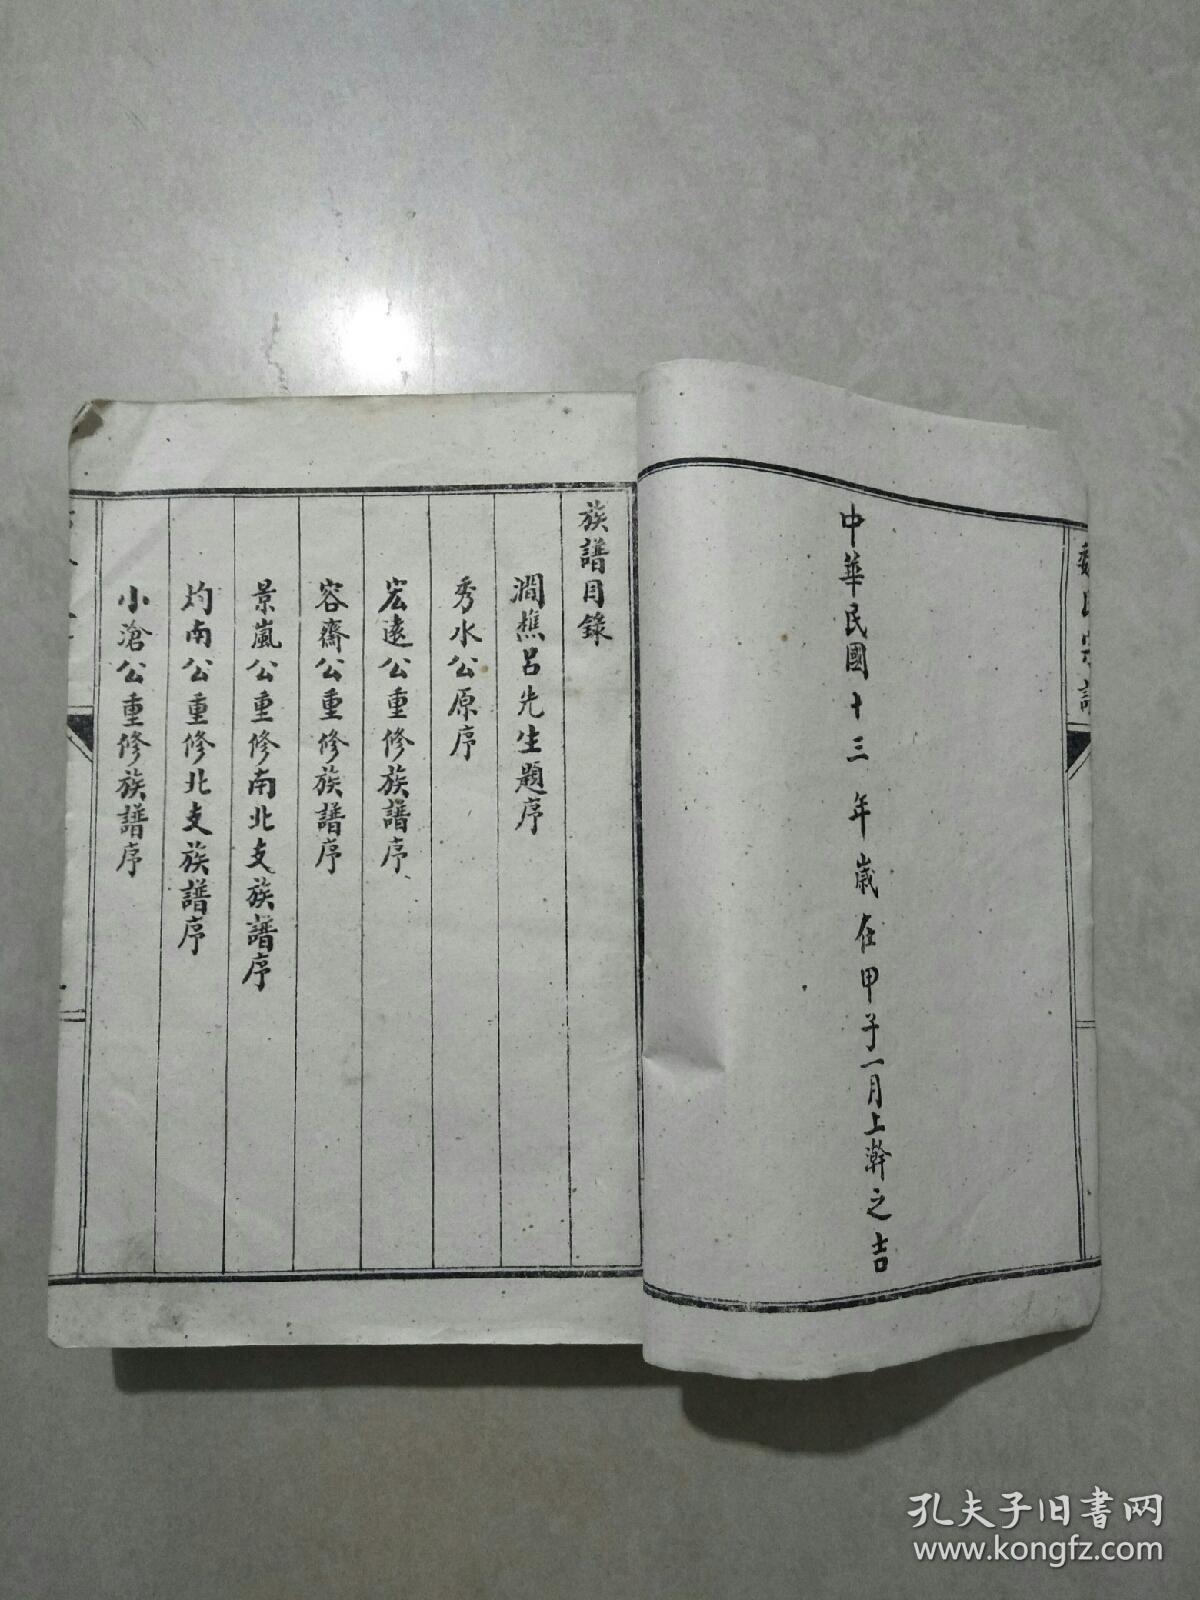 中華民國十三年歲在甲子一月上澣之吉
族譜目錄
澗樵呂先生題序
秀水公原序
宏遠公重修族譜序
容齋公重修族譜序
景嵐公重修南北支族譜序
灼南公重修北支族譜序
小滄公重修族譜序
孔夫子旧书网
www.kongfz.com